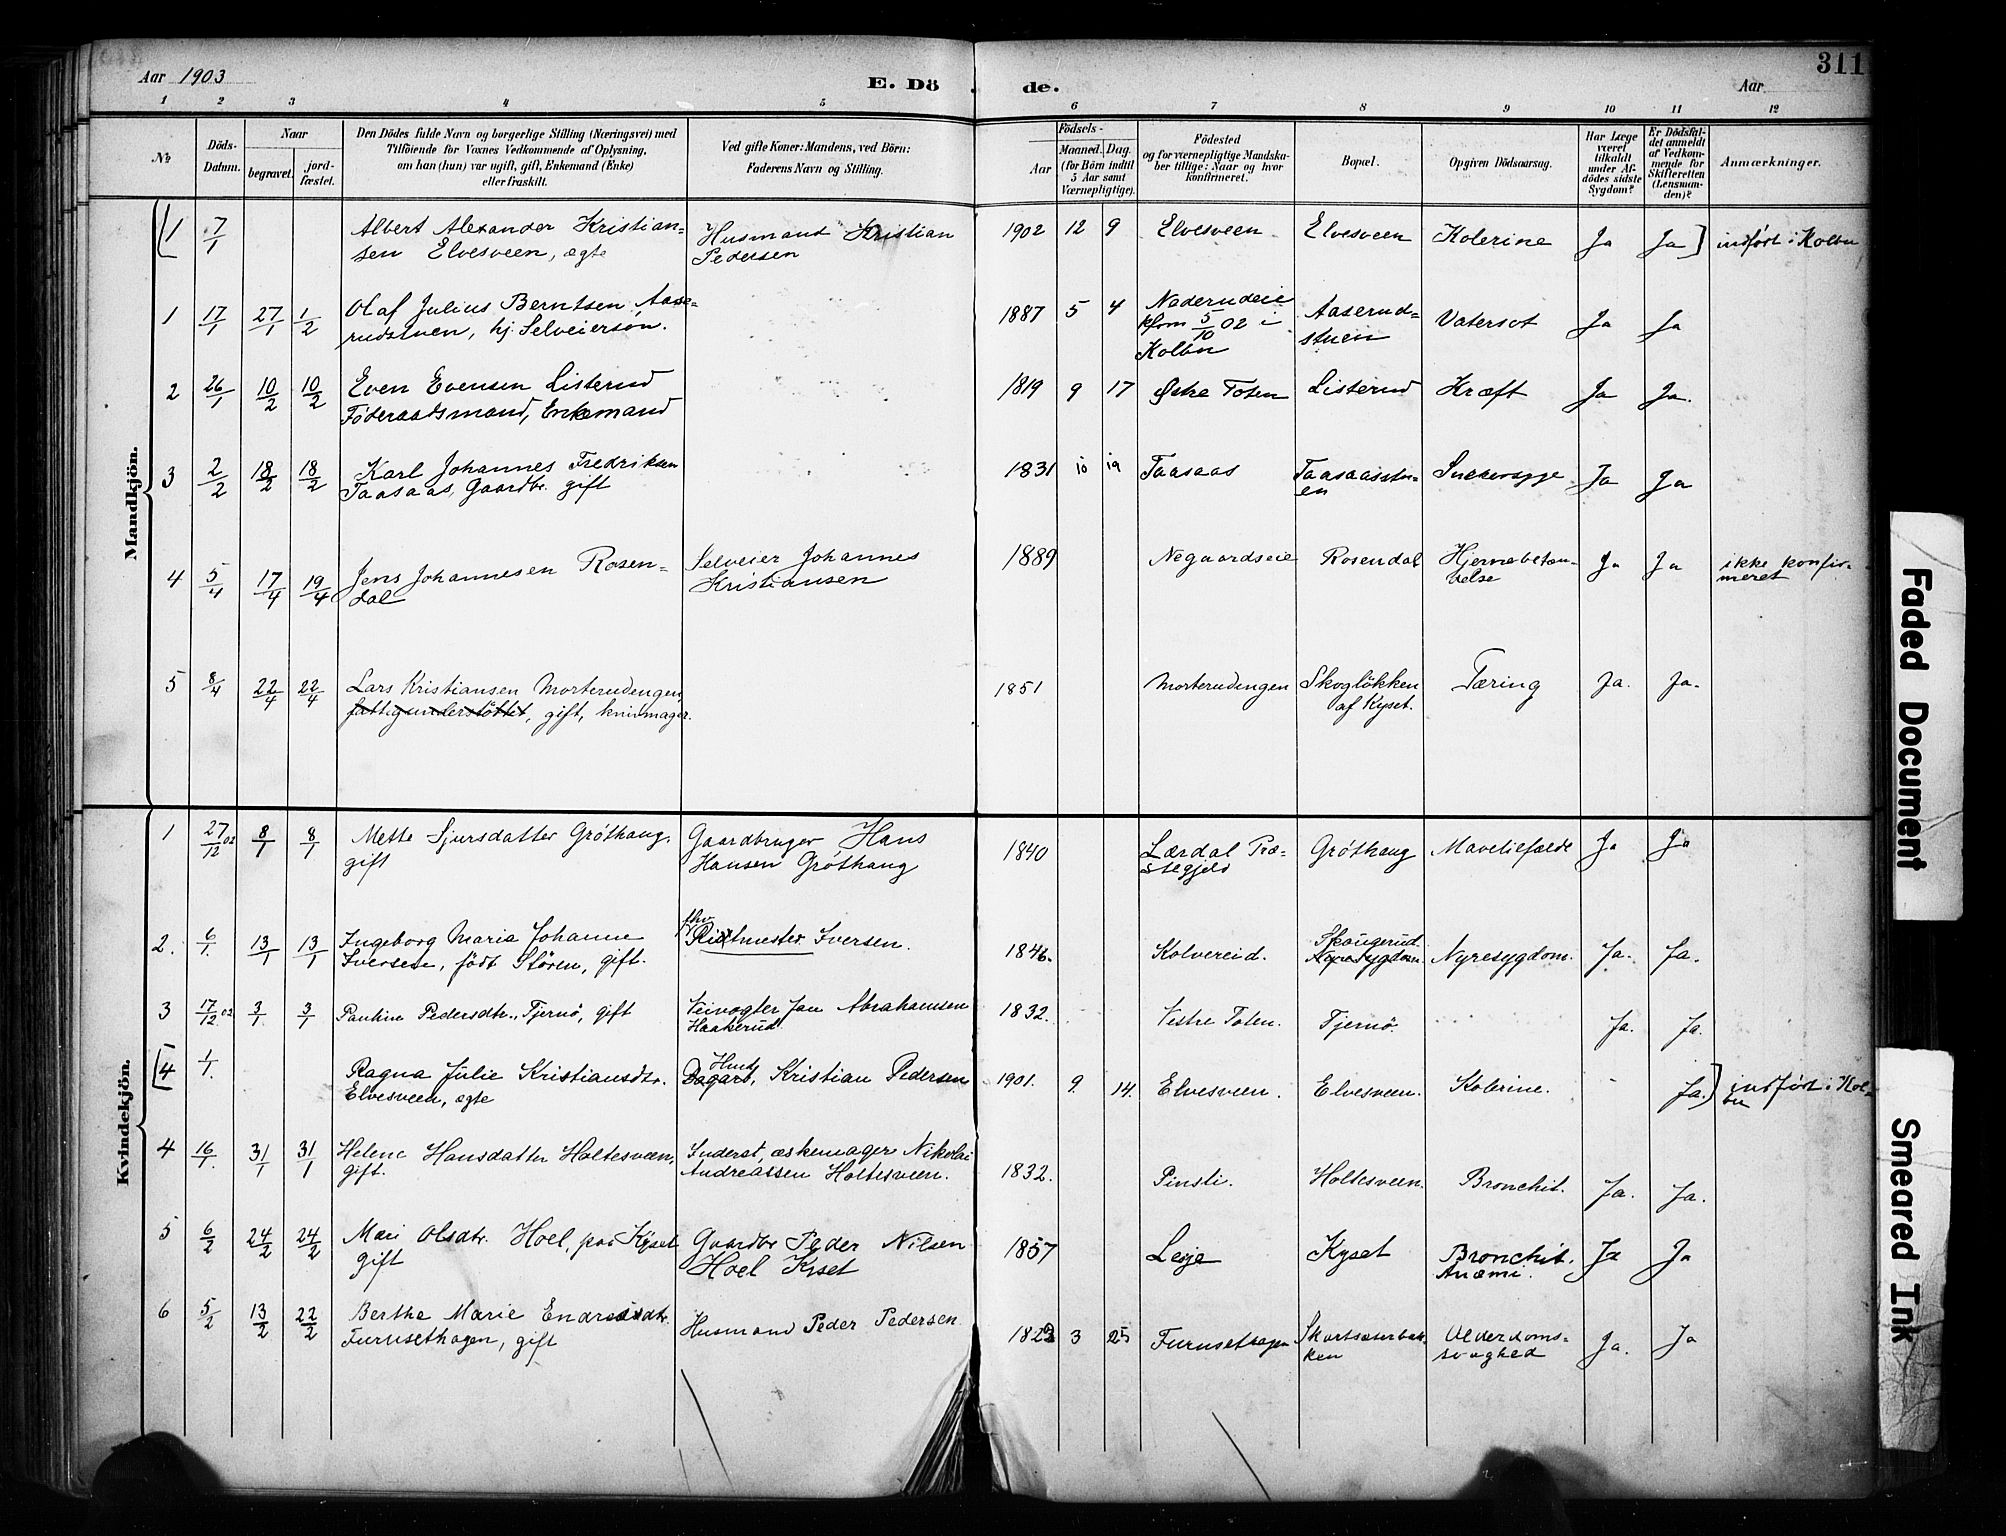 Aar 1903
E. Dö
de.
Aar
311
1 2 3 4 5 6 7 8 9 10 11 12
No
Döds-Datum.
Naar
begravet.
jord-fæstet.
Den Dödes fulde Navn og borgerlige Stilling (Næringsvei) med
Tilföiende for Voxnes Vedkommende af Oplysning,
om han (hun) var ugift, gift, Enkemand (Enke)
eller fraskilt.
Ved gifte Koner: Mandens, ved Börn:
Faderens Navn og Stilling.
Födsels-
Aar
Maaned. Dag.
(for Börn indtil
5 Aar samt
Værnepligtige).
Födested
og for værnepligtige Mandska-
ber tillige: Naar og hvor
konfirmeret.
Bopæl.
Opgiven Dödsaarsag.
Har Læge
været
tilkaldt
under Af-
dödes sidste
Sygdom?
Er Dödsfal-
det anmeldt
af Vedkom-
mende for
Skifteretten
(Lensman-
den)?
Anmærkninger.
Mandkjön.
[1 7/1 Albert Alexander Kristian= Husmand Kristian 1902 12 9 Elvesveen Elvesveen Kolerine Ja Ja] indført i Kolbu
sen Elvesveen, ægte Pedersen
1 17/1 27/1 1/2 Olaf Julius Berntsen Aase= 1887 5 4 Naderudeie Aaserud= Vatersot Ja Ja
rudstuen, hj. Selveiersøn. kfom 5/10 02 i stuen
Kolbu
2 26/1 10/2 10/2 Even Evensen Listerud 1819 9 17 Østre Toten Listerud Kræft Ja Ja.
Føderaadsmand, Enkemand
3 2/2 18/2 18/2 Karl Johannes Fredriksen 1831 10 19 Taasaas Taasaasstu- Sukkersyge Ja Ja
Taasaas, Gaardbr. gift en
4 5/4 17/4 19/4 Jens Johannesen Rosen= Selveier Johannes 1889 Negaardseie Rosendal Hjernebetæn- Ja Ja ikke konfir-
dal Kristiansen delse meret
5 8/4 22/4 22/4 Lars Kristiansen Morterudengen, 1851 Morterudengen Skogløkken Tæring Ja. Ja.
fattigunderstöttet, gift, knivmager. af Kyset.
Kvindekjön.
1 27/12 02 8/1 8/1 Mette Sjursdatter Gröthaug. Gaardbruger Hans 1840 Lærdal Præ- Gröthaug Mavetilfælde Ja Ja
gift Hansen Gröthaug stegjeld
2. 6/1. 13/1 13/1 Ingeborg Maria Johanne fhv. Rittmester Iversen. 1846. Kolvereid. Skougerud Nyresygdom. Ja. Ja.
Iversen, födt Stören, gift. Nyresygdom
3 17/12 02 3/1. 3/1 Pauline Pedersdtr. Tjernö, gift Veivogter Jan Abrahamsen 1832. Vestre Toten. Tjernö. Ja. Ja.
Haakerud
[4 1/1. Ragna Julie Kristiansdtr. Husm Dagarb, Kristian Pedersen 1901. 9. 14. Elvesveen. Elvesveen. Kolerine. - Ja.] indført i Kol-
Elvesveen, ægte bu
4 16/1. 31/1 31/1 Helene Hansdatter Holtesveen, Inderst, æskemager Nikolai 1832. Pinsli. Holtesveen. Bronchit. Ja. Ja.
gift. Andreassen Holtesveen.
5 6/2 24/2 24/2 Mari Olsdtr. Hoel, paa Kyset Gaardbr Peder Nilsen 1857 Lesje Kyset Bronchit. Ja Ja
gift Hoel Kyset Anæmi.
6 5/2 13/2 22/2 Berthe Marie Endresdtr. Husmand Peder Pedersen 3 25 Furusethagen Ja. Ja
Furusethagen, gift ken
Alderdoms=
svaghed
Faded Document
Smeared Ink